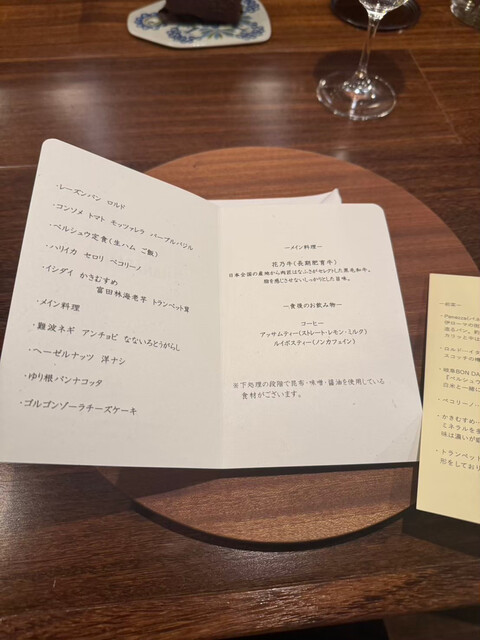 ・レーズンパン ロルド
・コンソメ トマト モッツァレラ パープルバジル
・ペルシュウ定食(生ハム ご飯)
・ハリイカ セロリ ペコリーノ
・イシダイ かきむすめ
富田林海老芋 トランペット茸
・メイン料理
・難波ネギ アンチョビ なないろとうがらし
・ヘーゼルナッツ 洋ナシ
・ゆり根パンナコッタ
・ゴルゴンゾーラチーズケーキ
―メイン料理―
花乃牛(長期肥育牛)
日本全国の産地から肉匠はなふさがセレクトした黒毛和牛。
脂を感じさせないしっかりとした旨味。
―食後のお飲み物―
コーヒー
アッサムティー(ストレート・レモン・ミルク)
ルイボスティー(ノンカフェイン)
※下処理の段階で昆布・味噌・醤油を使用している
食材がございます。
―前菜―
・ペコリーノ
・かきむすめ
ミネラルを
味は濃いが
・トランペット
形をしており